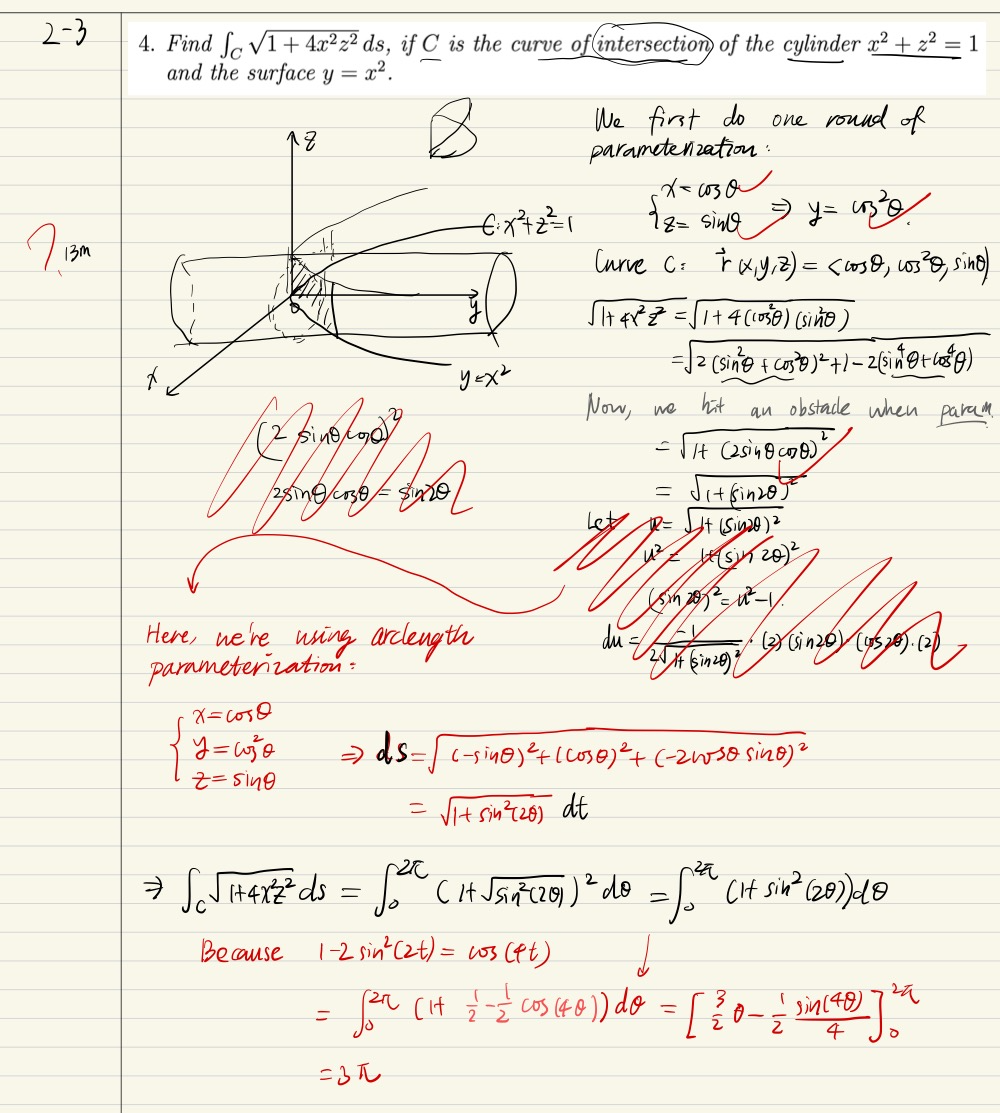 2-3
4. Find ∫_C √(1 + 4x²z²) ds, if C is the curve of intersection of the cylinder x² + z² = 1
and the surface y = x².
We first do one round of
parameterization:
{ x = cosθ
z = sinθ ⇒ y = cos²θ.
z
C: x²+z²=1
?. 13m
o
y
x
y=x²
Curve C: r⃗(x,y,z) = <cosθ, cos²θ, sinθ)
√(1+4x²z²) = √(1+4(cos²θ)(sin²θ))
= √(2(sin²θ + cos²θ)²+1-2(sin⁴θ+cos⁴θ))
Now, we hit an obstacle when param.
= √(1+ (2sinθcosθ)²)
= √(1+(sin2θ)²)
(2 sinθcosθ)²
2sinθcosθ = sin2θ
Let u = √(1+(sin2θ)²)
u² = 1+(sin 2θ)²
(sin 2θ)² = u²-1.
du = -1/(2√(1+(sin2θ)²)) · (2)(sin2θ)·(cos2θ)·(2)
Here, we're using arclength
parameterization:
{ x=cosθ
y=cos²θ
z=sinθ
⇒ ds = √((-sinθ)²+(cosθ)²+(-2cosθ sinθ)²)
= √(1+sin²(2θ)) dt
⇒ ∫_C √(1+4x²z²) ds = ∫_0^2π (1+√(sin²(2θ)))² dθ = ∫_0^2π (1+sin²(2θ))dθ
Because 1-2sin²(2t) = cos(4t)
= ∫_0^2π (1+ 1/2 - 1/2 cos(4θ))dθ = [3/2 θ - 1/2 sin(4θ)/4]_0^2π
= 3π